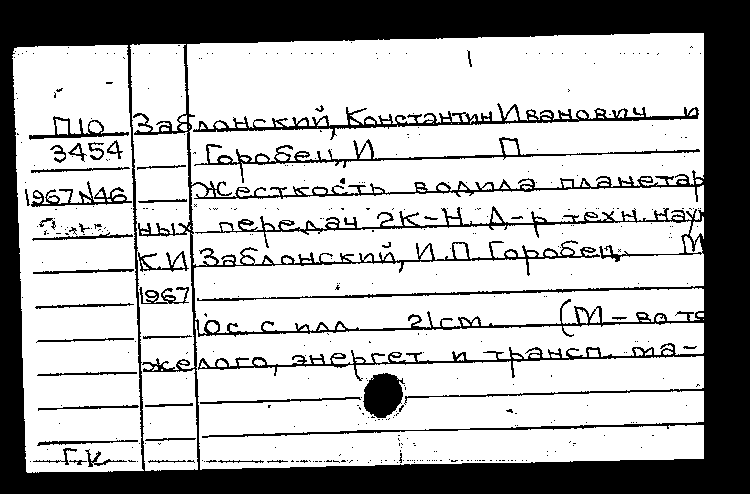 П10 Заблонский, Константин Иванович и
3454 Горобец, И П
1967 №46 Жесткость водила планетар
ных передач 2К-Н. Д-р техн. наук
К.И. Заблонский, И.П. Горобец. М
1967
10с. с илл. 21см. (М-во тя
желого, энергет. и трансп. ма-
Г.К